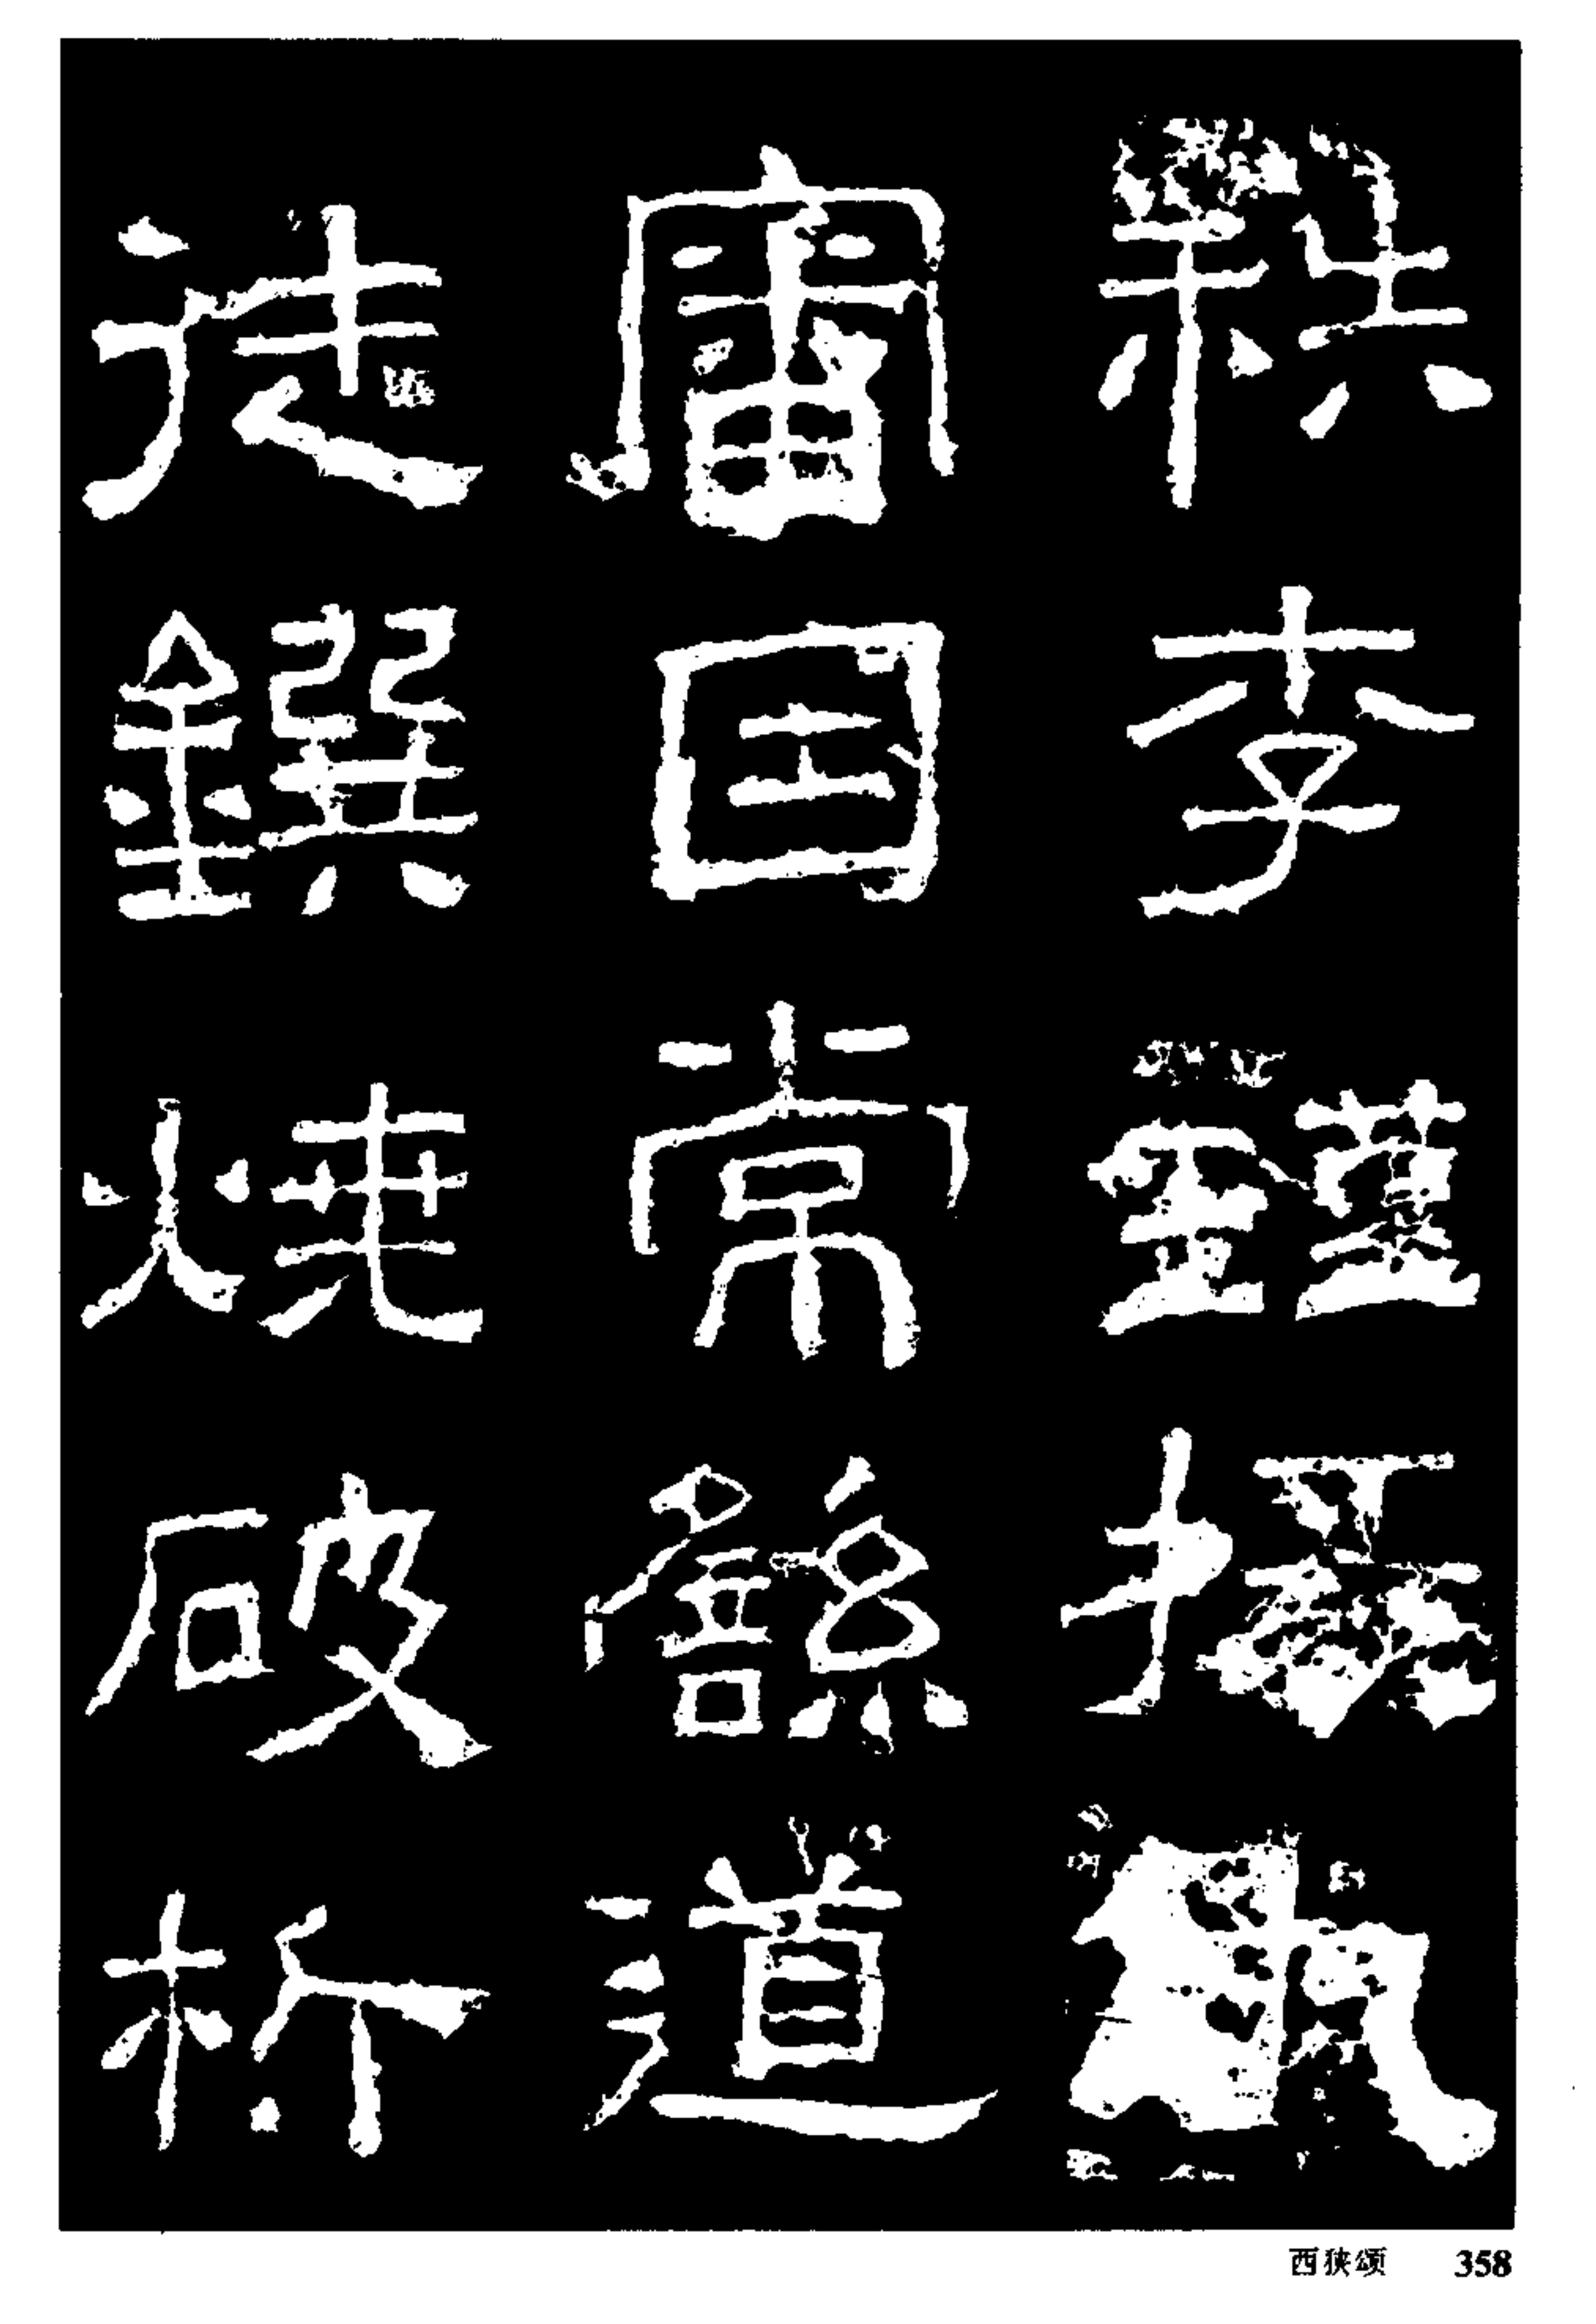 秩李瑾掾仇
審因常繇道
徒鐉燒破析
西狭颂 358